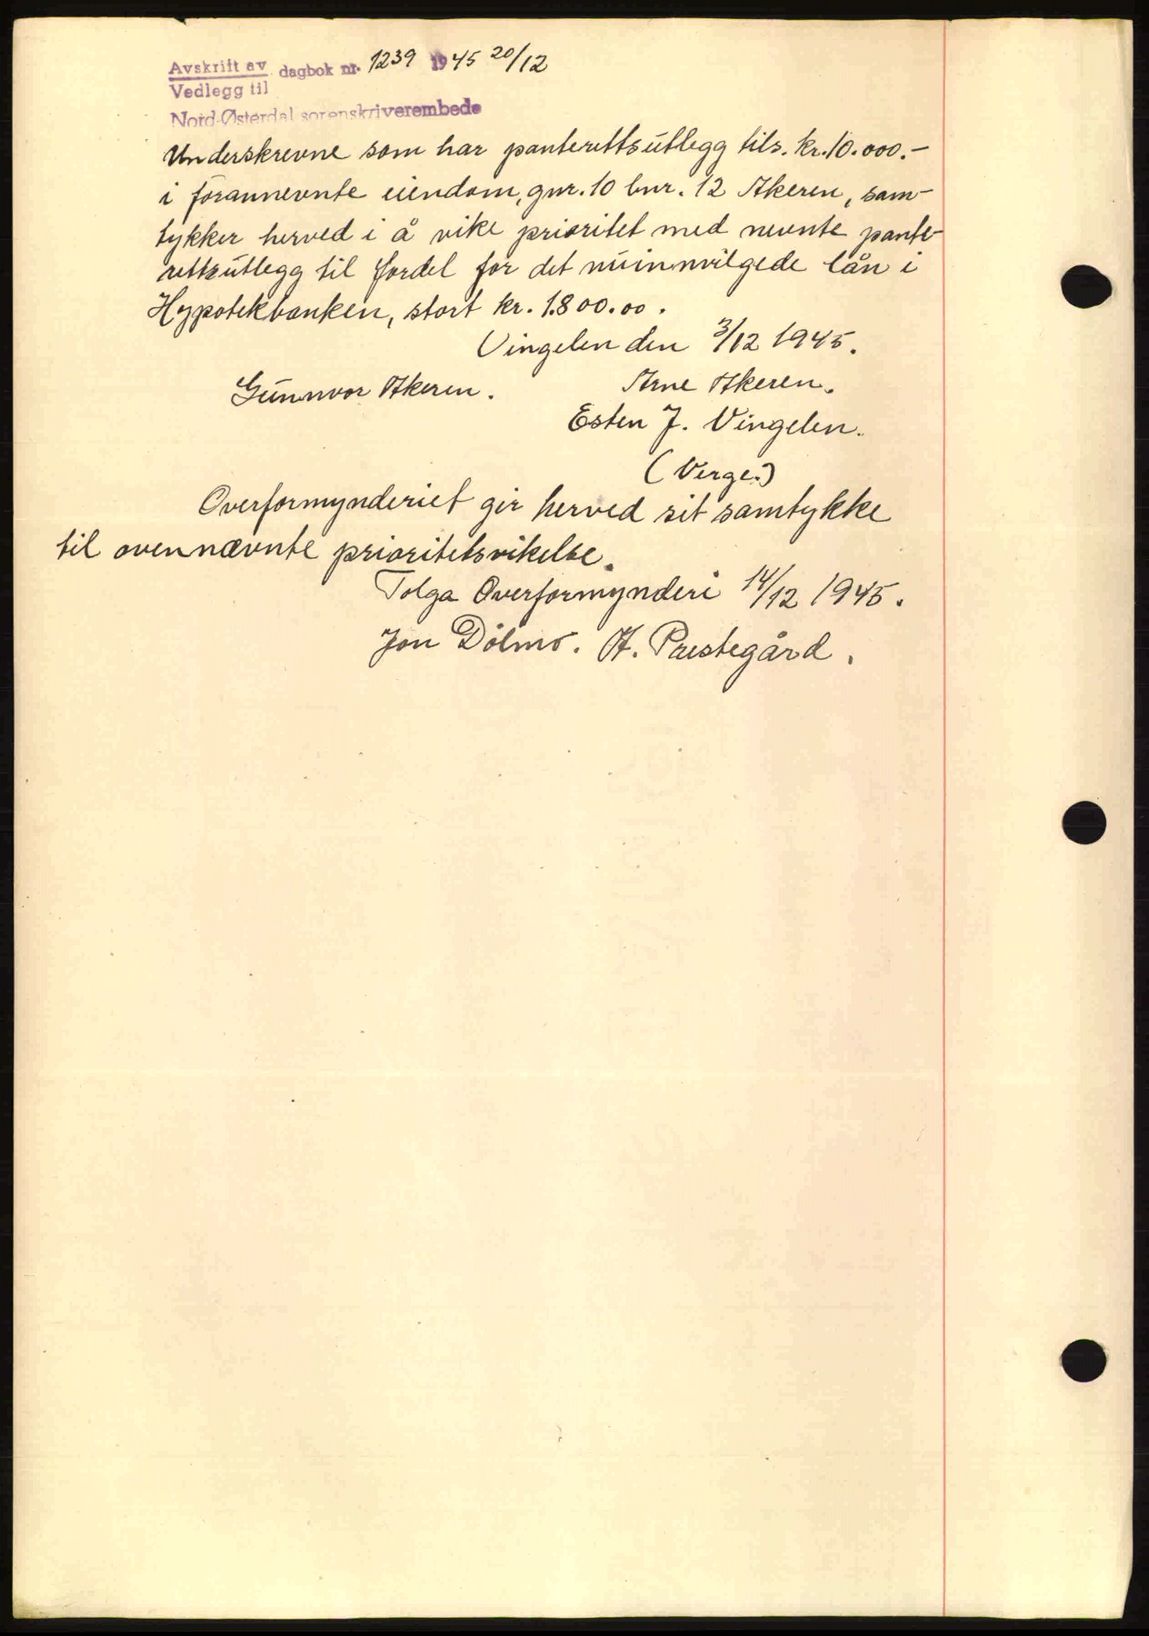 Avskrift av dagbok nr. 1239 1945 20/12
Vedlegg til
Nord-Østerdal sorenskriverembede
Underskrevne som har panterettsutlegg tils. kr. 10.000.-
i forannevnte eiendom, gnr. 10 bnr. 12 Akeren, sam-
tykker herved i å vike prioritet med nevnte pante-
rettsutlegg til fordel for det nu innvilgede lån i
Hypotekbanken, stort kr. 1.800.00.
Vingelen den 3/12 1945.
Gunnvor Akeren. Arne Akeren.
Esten J. Vingelen.
(Verge.)
Overformynderiet gir herved sit samtykke
til ovennævnte prioritetsvikelse.
Tolga Overformynderi 14/12 1945.
Jon Dølmo. A. Prestegård.